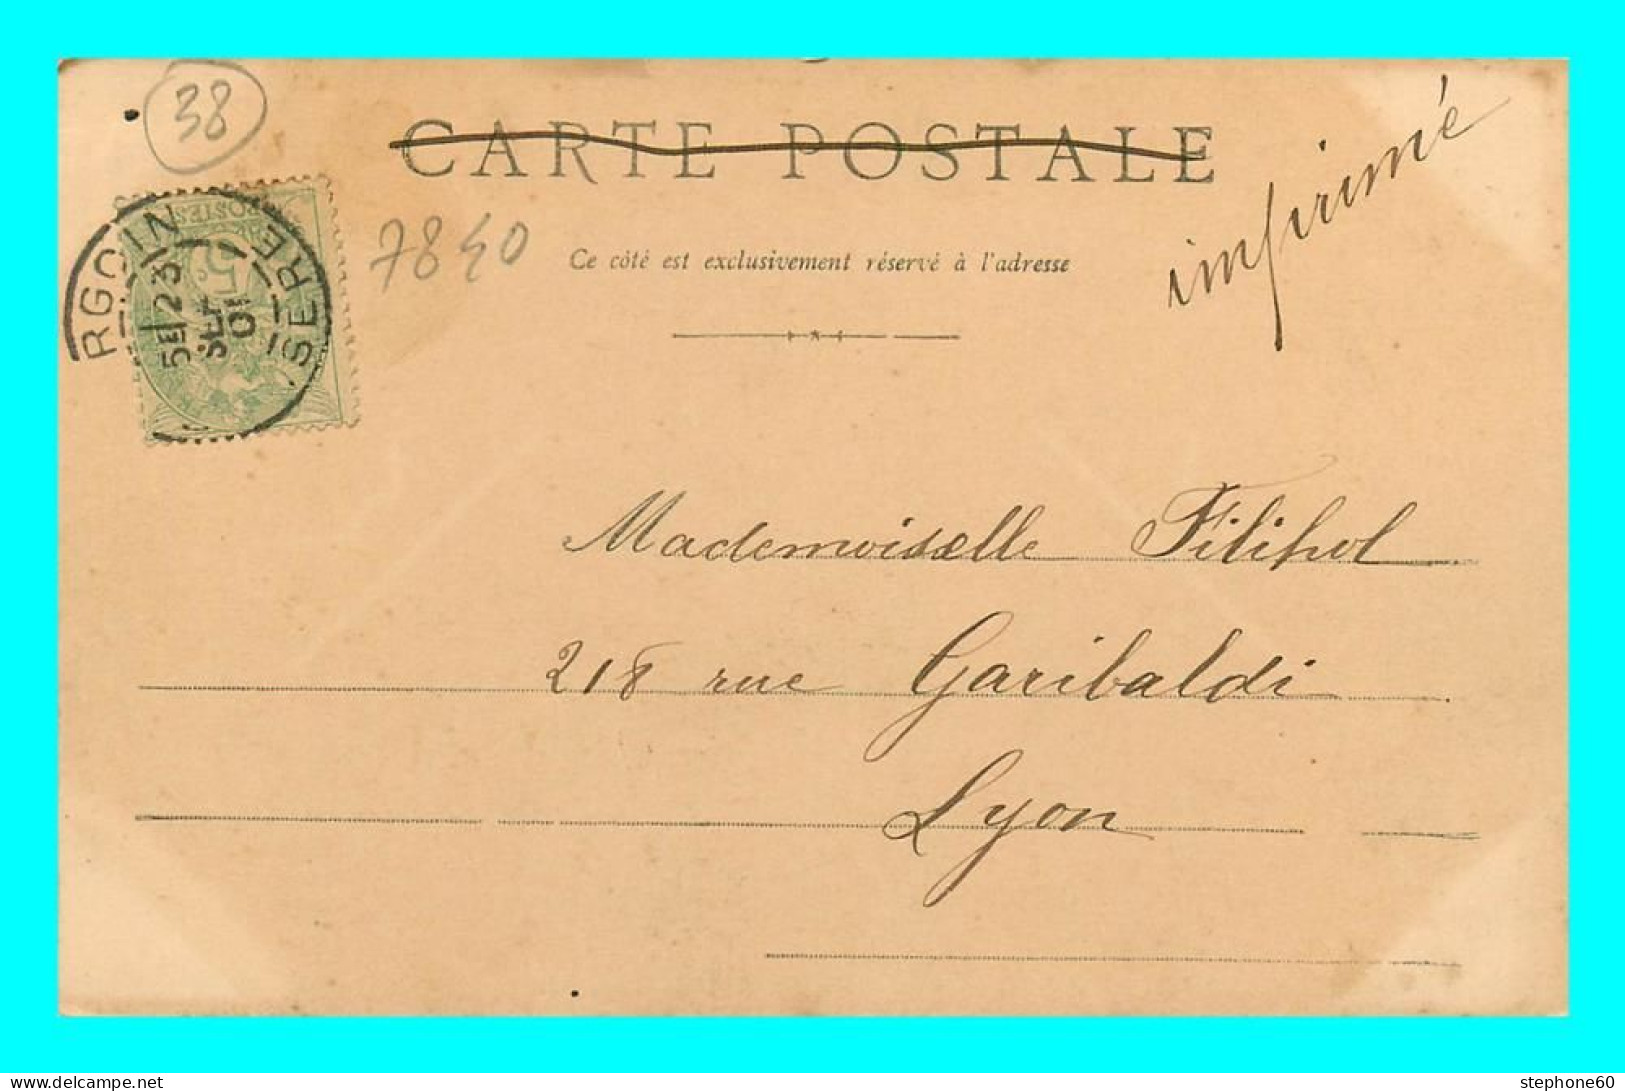 38
CARTE POSTALE
imprimé
7840
Ce côté est exclusivement réservé à l'adresse
POSTES
5c
RGOIN
ISERE
5E/23
SEPT
01
Mademoiselle Filihol
218 rue Garibaldi
Lyon
www.delcampe.net
stephone60